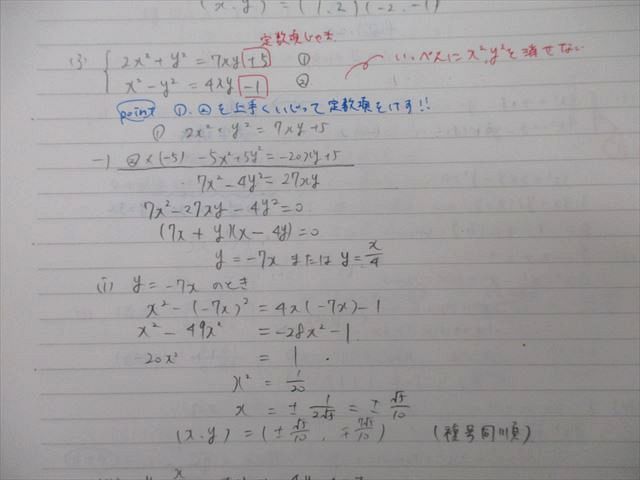 (x,y) = (1,2)(-2,-1)
定数項じゃま
(3) { 2x²+y² = 7xy+5 ①
x²-y² = 4xy-1 ②
いっぺんに x²,y²を消せない
point ①,②を上手くいじって定数項をけす!!
① 2x²+y² = 7xy+5
-) ②×(-5) -5x²+5y² = -20xy+5
7x²-4y² = 27xy
7x²-27xy-4y² = 0
(7x+y)(x-4y) = 0
y = -7x または y = x/4
(i) y = -7x のとき
x²-(-7x)² = 4x(-7x)-1
x²-49x² = -28x²-1
-20x² = 1
x² = 1/20
x = ± 1/2√5 = ± √5/10
(x,y) = (± √5/10, ∓ 7√5/10) (複号同順)